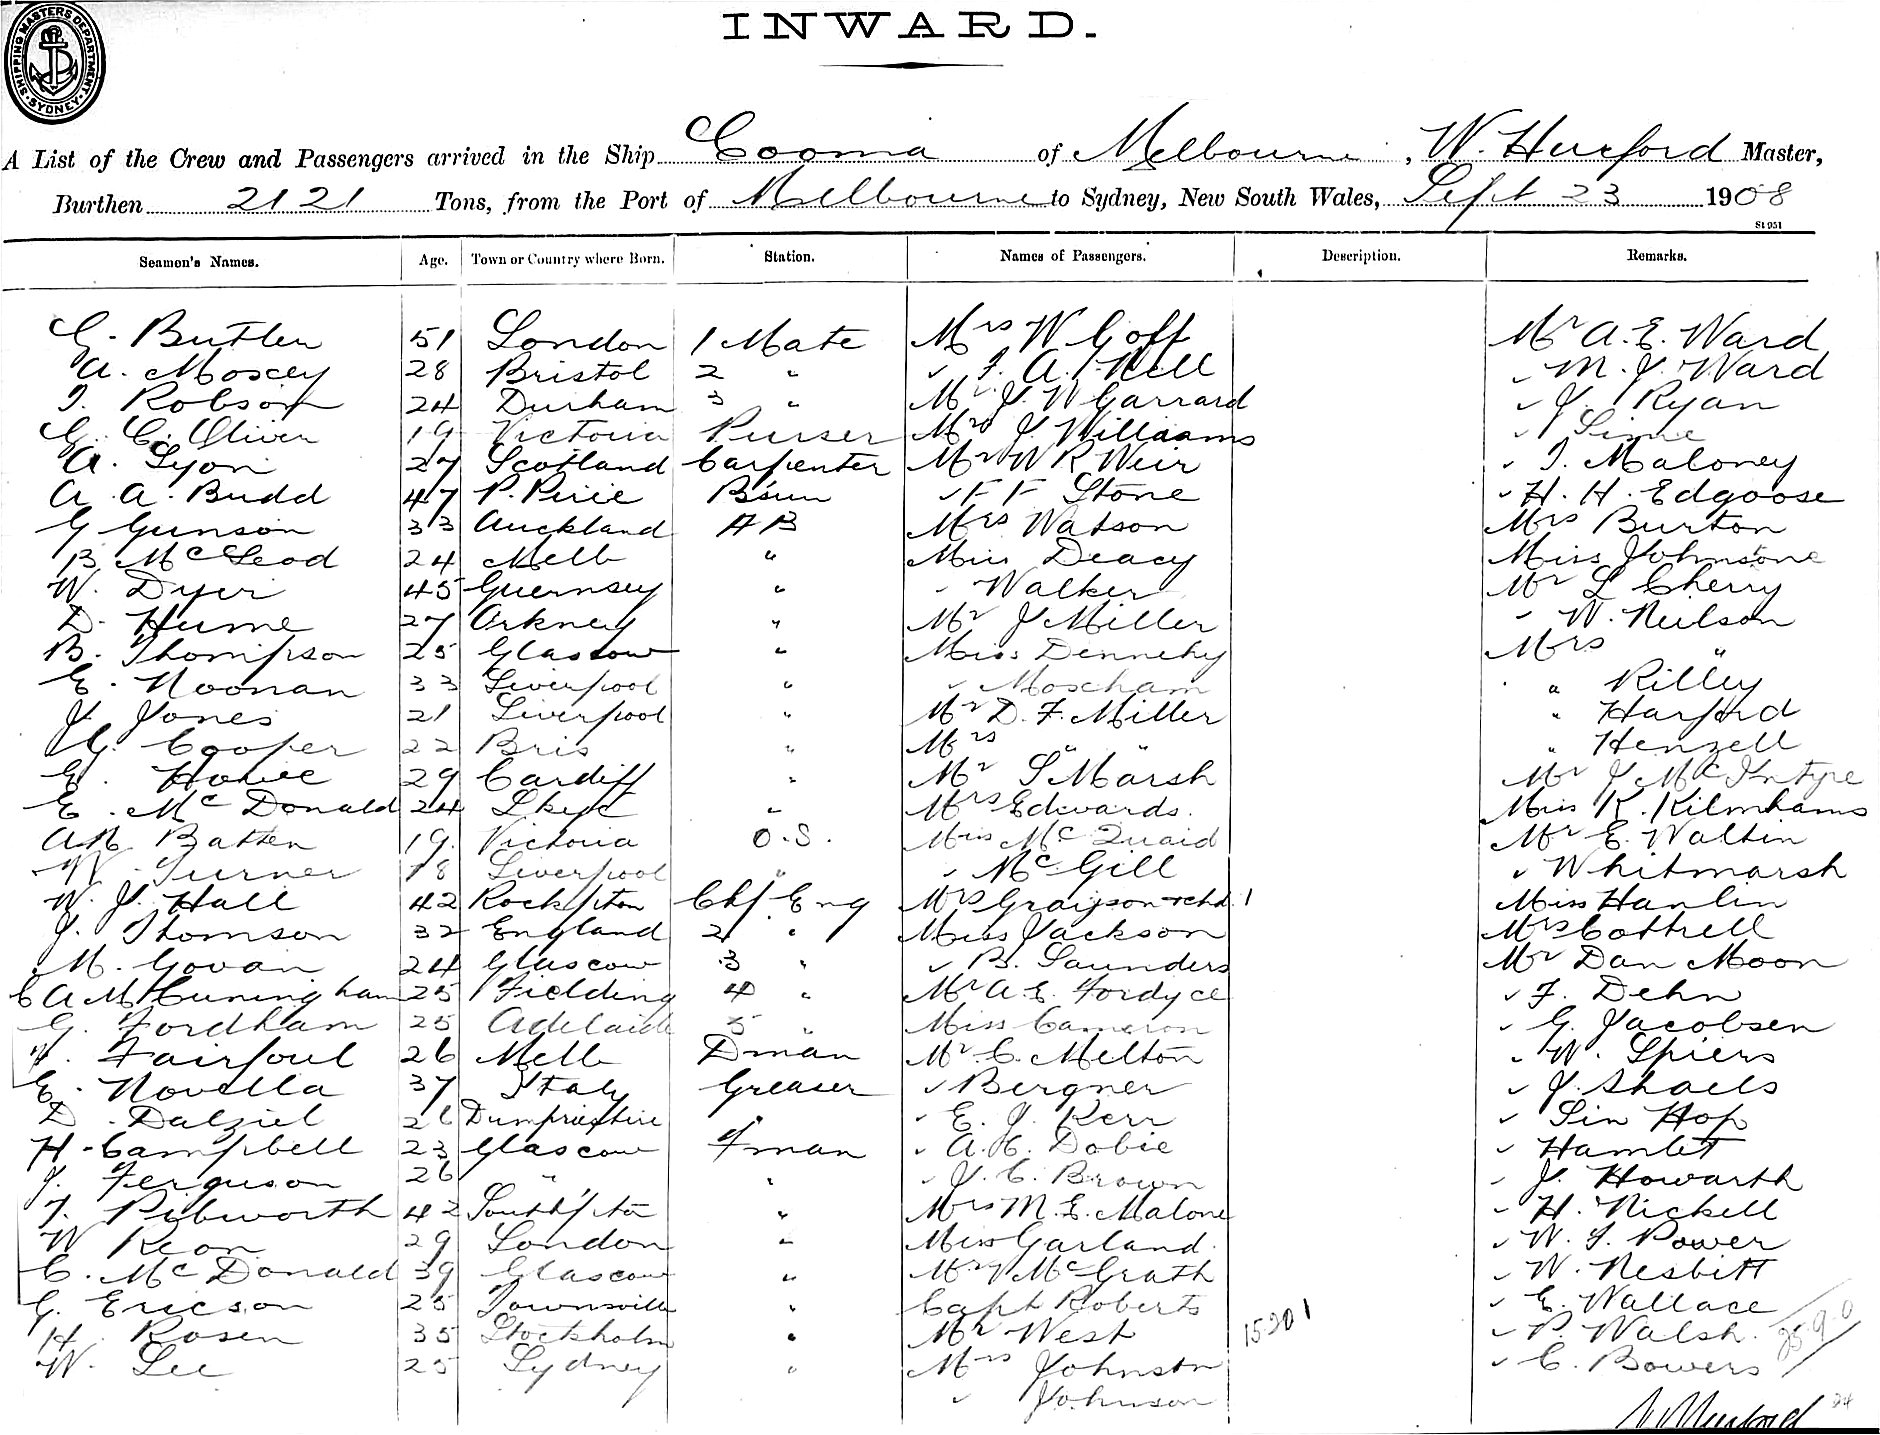 SHIPPING MASTERS DEPARTMENT. SYDNEY.
INWARD.
A List of the Crew and Passengers arrived in the Ship Cooma of Melbourne, W. Hurford Master,
Burthen 2121 Tons, from the Port of Melbourne to Sydney, New South Wales, Sept 23 1908
St 951
Seamen's Names. Age. Town or Country where Born. Station. Names of Passengers. Description. Remarks.
G. Butler 51 London 1 Mate Mrs W Goft Mr A. E. Ward
A. Moxey 28 Bristol 2 " " F. A. Nell " M. J. Ward
J. Robson 24 Durham 3 " Mr J. W Garrard " J. Ryan
G. C. Oliver 19 Victoria Purser Mrs J. Williams "
A. Lyon 27 Scotland Carpenter Mr W R Weir " J. Maloney
A. A. Budd 47 P. Pirie B'sun " F F Stone " H. H. Edgoose
G Gunson 33 Auckland AB Mrs Watson Mrs Burton
B McLeod 24 Melb " Miss Deacy Miss Johnstone
W. Dyer 45 Guernsey " " Walker Mr L Cherry
D. Hume 27 Orkney " Mr J Miller " W. Neilson
B. Thompson 25 Glascow " Miss Dennehy Mrs "
E. Noonan 33 Liverpool " " Moscham " Rilley
J. Jones 21 Liverpool " Mr D. F. Miller " Harford
G. Cooper 22 Bris " Mrs " " " Henzell
E. Howe 29 Cardiff " Mr S Marsh Mr J McIntyre
E. McDonald 24 " Mrs Edwards. Miss K. Kilmhams
A. Batten 19 Victoria O.S. Miss McQuaid Mr E. Waltin
W. Turner 18 Liverpool " " McGill " Whitmarsh
W. J. Hall 42 Rock'pton Chf Eng Mrs Grayson + chd. 1 Miss Hanlin
J. Thomson 32 England 2 " Miss Jackson Mrs Cottrell
M. Govan 24 Glascow 3 " " B. Saunders Mr Dan Moon
C A M Cuningham 25 Fielding 4 " Mr A. E. Fordyce " F. Dehn
G. Fordham 25 Adelaide 5 " Miss Cameron " G. Jacobsen
Fairfoul 26 Melb Dman Mr C. Melton " W. Spiers
E. Novella 37 Italy Greaser " Bergner " J. Shaels
D. Dalziel 26 Dumfrieshire " " E. J. Kerr " Sin Hop
H. Campbell 23 Glascow Fman " A. C. Dobie " Hamlet
J. Ferguson 26 " " " J. C. Brown " J. Howarth
T. Pibworth 42 South'pton " Mrs M. E. Malone " H. Nickell
W Keon 29 London " Miss Garland " W. J. Power
C. McDonald 39 Glascow " McGrath " W. Nesbitt
G. Ericson 25 Townsville " Capt Roberts " E. Wallace
H. Rosen 35 Stockholm " Mr West 15201 " P. Walsh.
W. Lee 25 Sydney " Mrs Johnston " C. Bowers
" Johnson
W Hurford